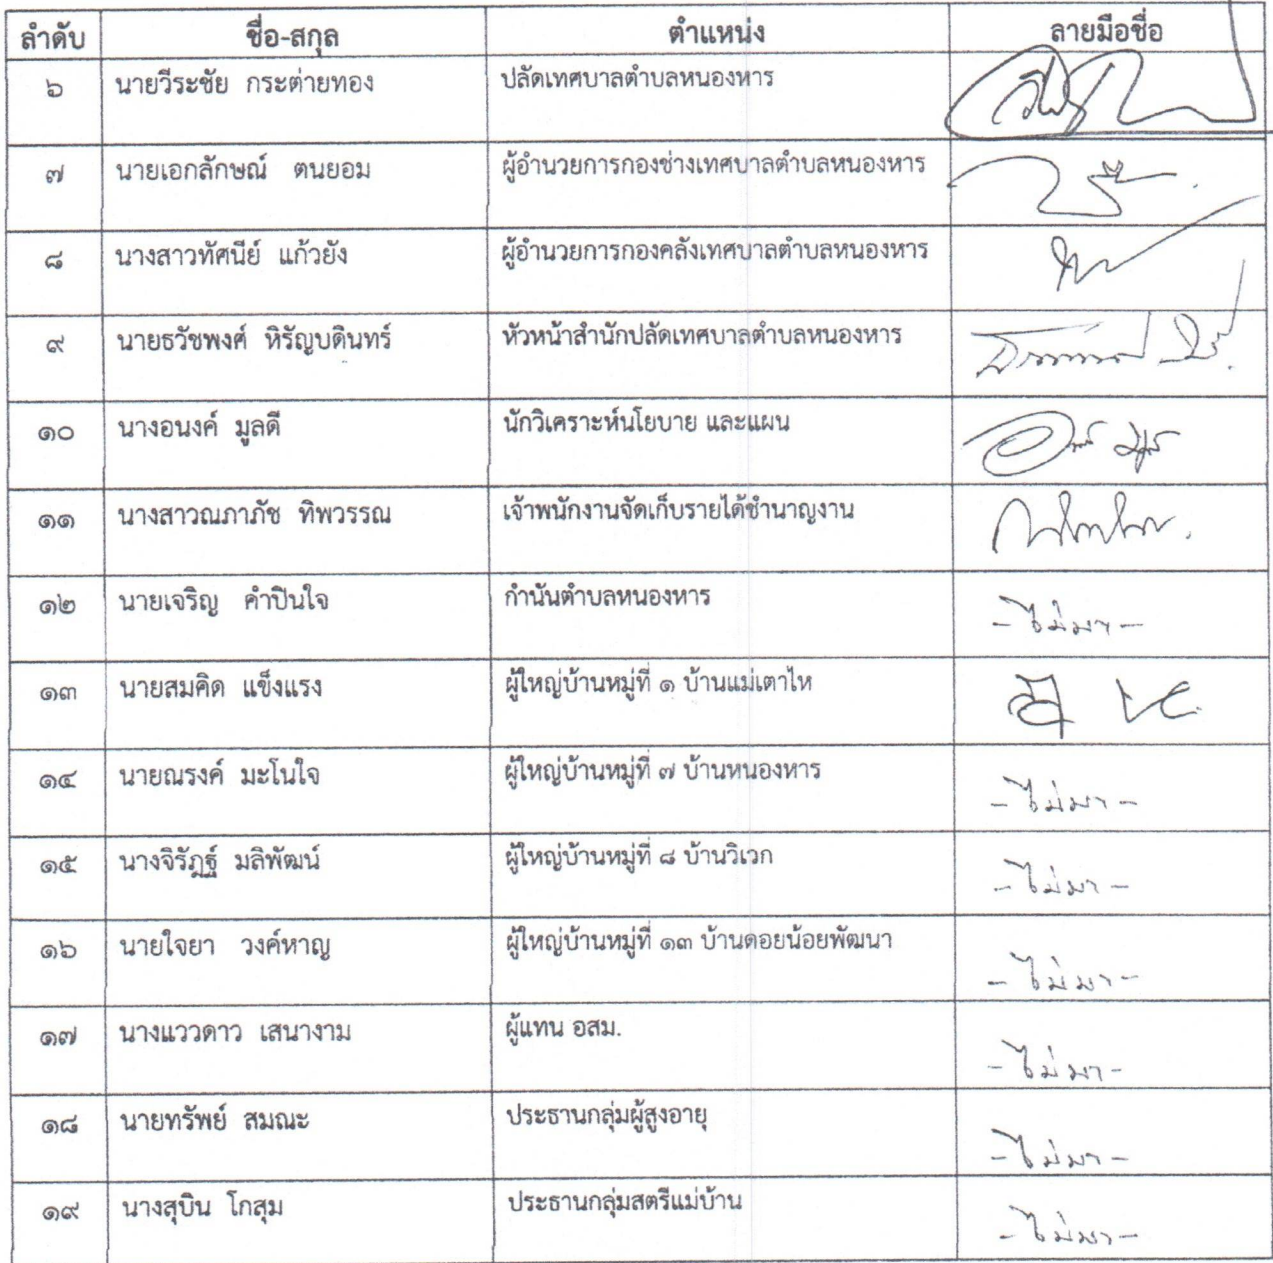 ลำดับ ชื่อ-สกุล ตำแหน่ง ลายมือชื่อ
๖ นายวีระชัย กระต่ายทอง ปลัดเทศบาลตำบลหนองหาร
๗ นายเอกลักษณ์ ตนยอม ผู้อำนวยการกองช่างเทศบาลตำบลหนองหาร
๘ นางสาวทัศนีย์ แก้วยัง ผู้อำนวยการกองคลังเทศบาลตำบลหนองหาร
๙ นายธวัชพงศ์ หิรัญบดินทร์ หัวหน้าสำนักปลัดเทศบาลตำบลหนองหาร
๑๐ นางอนงค์ มูลดี นักวิเคราะห์นโยบาย และแผน
๑๑ นางสาวณภาภัช ทิพวรรณ เจ้าพนักงานจัดเก็บรายได้ชำนาญงาน
๑๒ นายเจริญ คำปินใจ กำนันตำบลหนองหาร -ไม่มา-
๑๓ นายสมคิด แข็งแรง ผู้ใหญ่บ้านหมู่ที่ ๑ บ้านแม่เตาไห
๑๔ นายณรงค์ มะโนใจ ผู้ใหญ่บ้านหมู่ที่ ๗ บ้านหนองหาร -ไม่มา-
๑๕ นางจิรัฏฐ์ มลิพัฒน์ ผู้ใหญ่บ้านหมู่ที่ ๘ บ้านวิเวก -ไม่มา-
๑๖ นายใจยา วงค์หาญ ผู้ใหญ่บ้านหมู่ที่ ๑๓ บ้านดอยน้อยพัฒนา -ไม่มา-
๑๗ นางแววดาว เสนางาม ผู้แทน อสม. -ไม่มา-
๑๘ นายทรัพย์ สมณะ ประธานกลุ่มผู้สูงอายุ -ไม่มา-
๑๙ นางสุบิน โกสุม ประธานกลุ่มสตรีแม่บ้าน -ไม่มา-